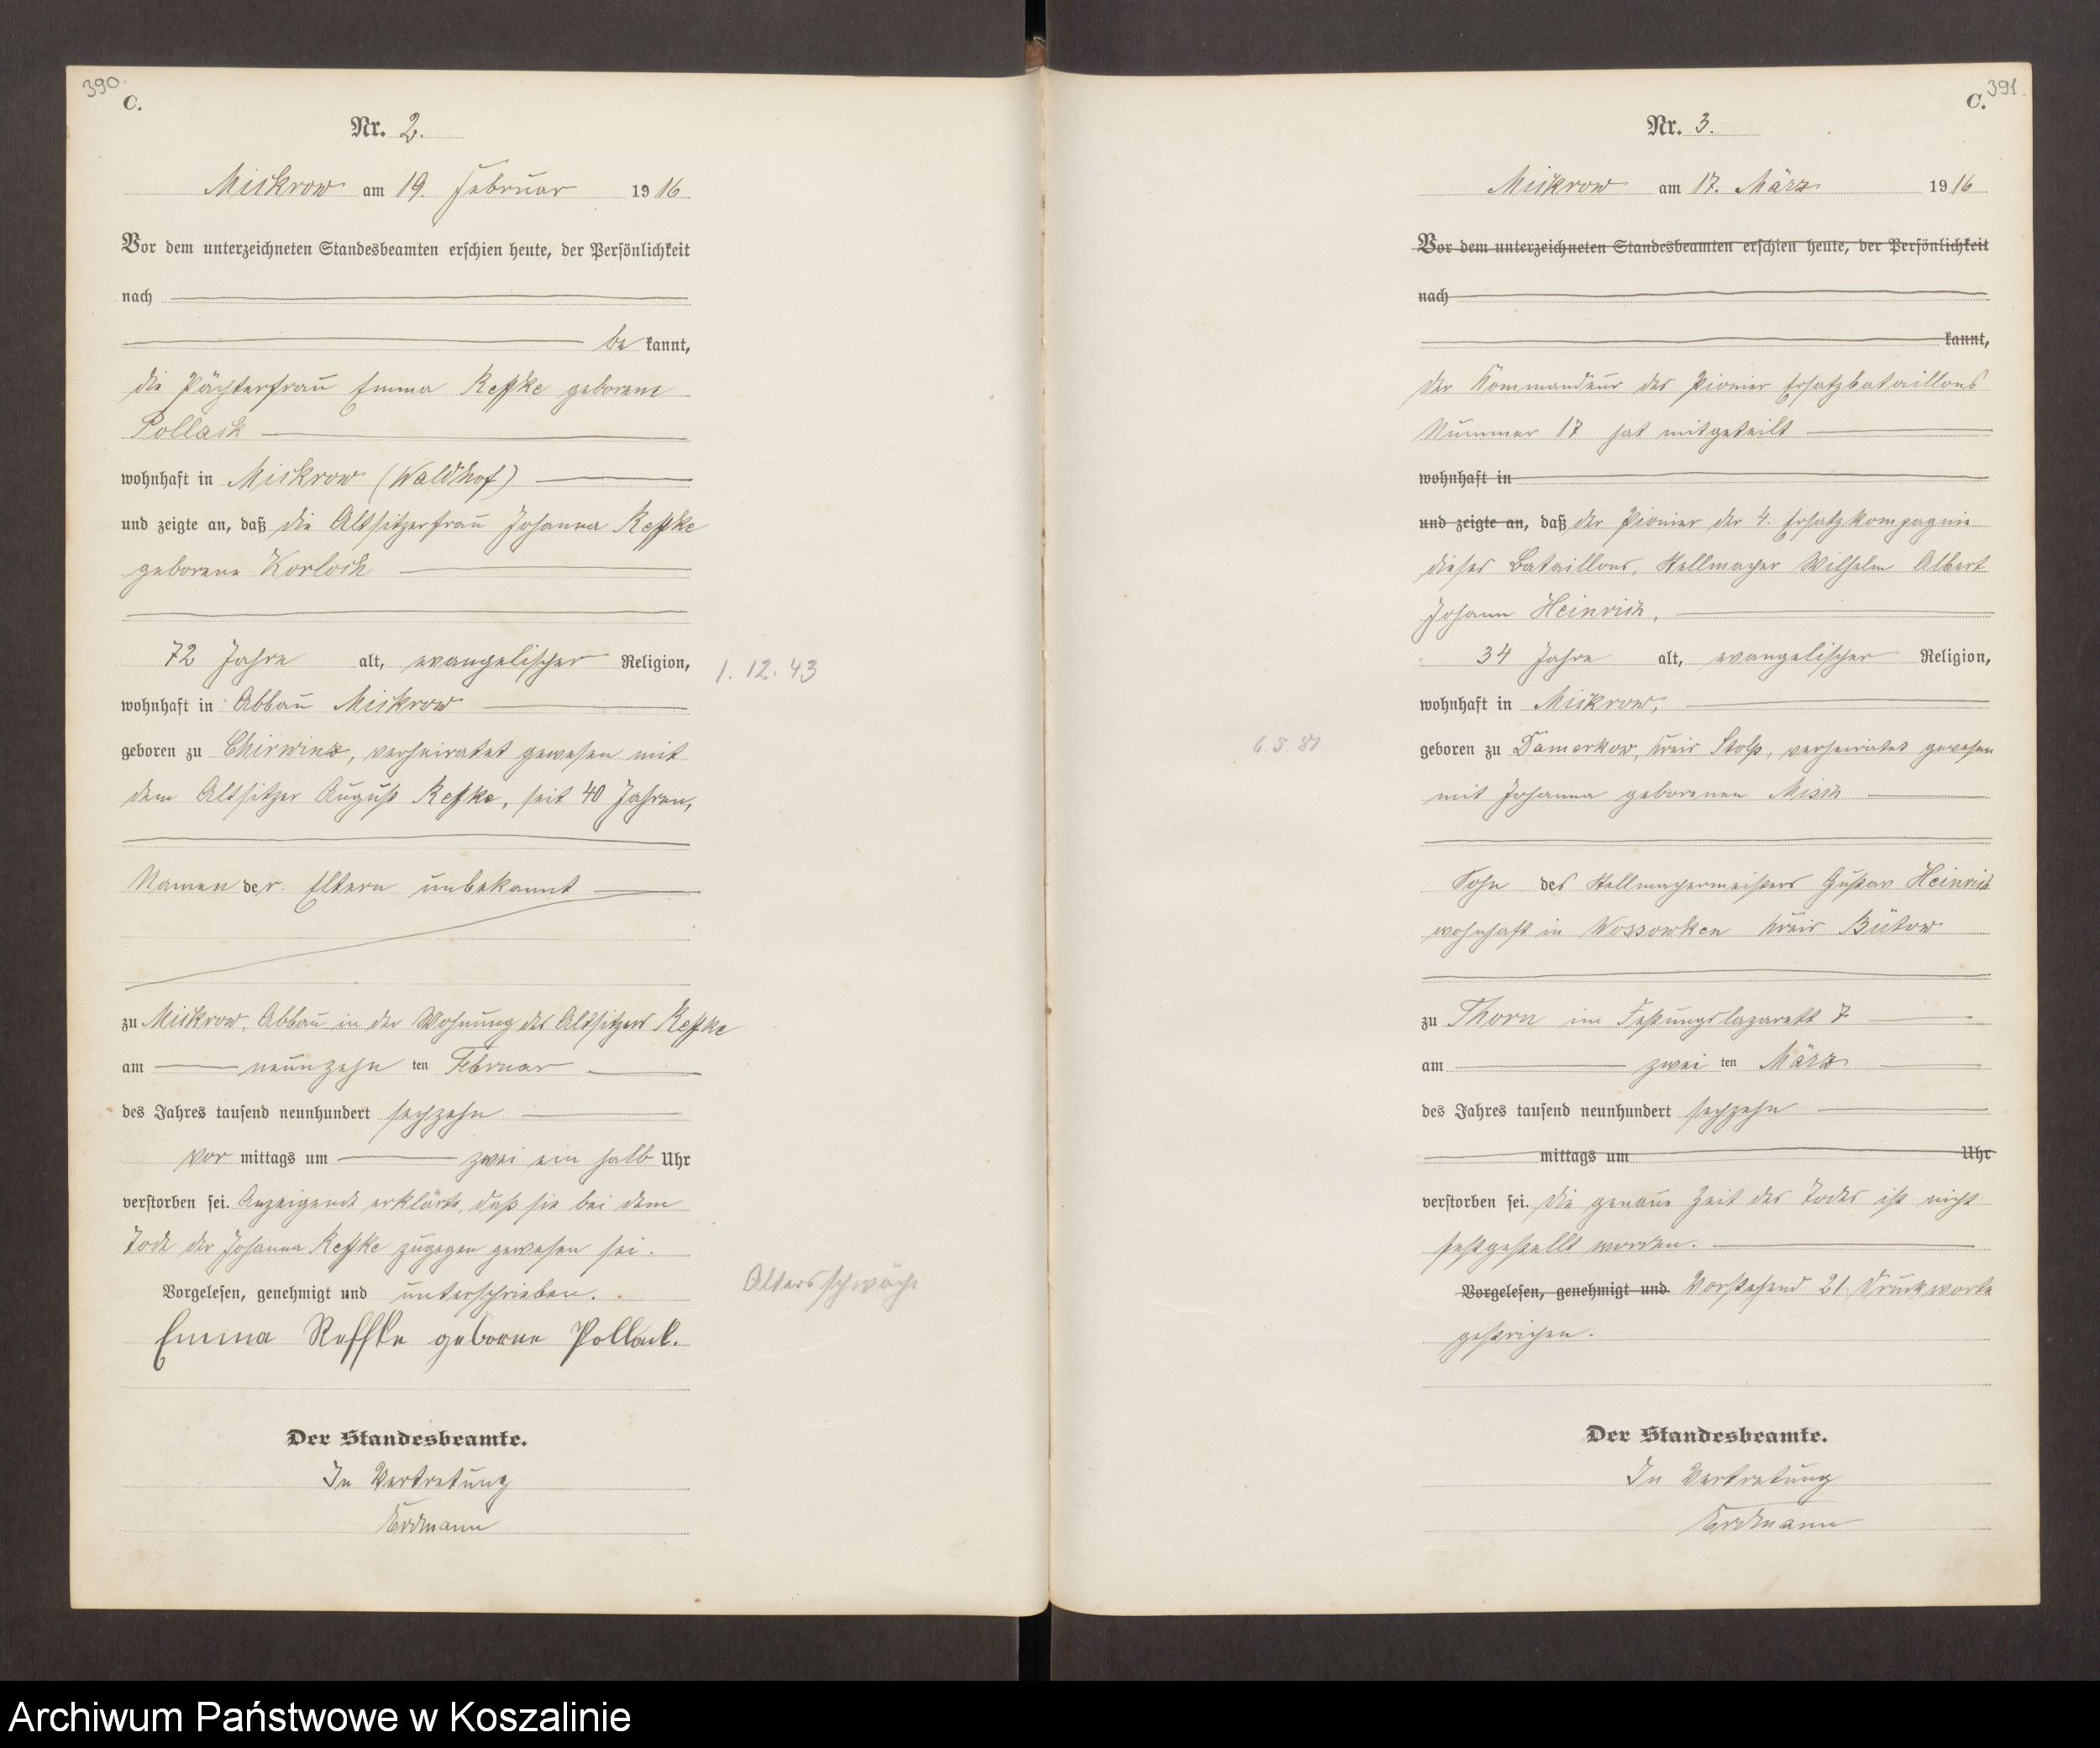 390.
C.
Nr. 2.
Mickrow am 19. Februar 1916
Vor dem unterzeichneten Standesbeamten erschien heute, der Persönlichkeit
nach
be kannt,
die Pächterfrau Emma Reffke geborene
Pollack
wohnhaft in Mickrow (Waldhof)
und zeigte an, daß die Altsitzerfrau Johanna Reffke
geborene Korlock
72 Jahre alt, evangelischer Religion,
1. 12. 43
wohnhaft in Abbau Mickrow
geboren zu Chirwinz, verheiratet gewesen mit
dem Altsitzer August Refke, seit 40 Jahren,
Namen der Eltern unbekannt
zu Mickrow, Abbau in der Wohnung des Altsitzers Reffke
am neunzehn ten Februar
des Jahres tausend neunhundert sechzehn
vor mittags um zwei ein halb Uhr
verstorben sei. Anzeigende erklärte, daß sie bei dem
Tode der Johanna Reffke zugegen gewesen sei.
Vorgelesen, genehmigt und unterschrieben.
Altersschwäche
Emma Reffke geborne Pollack.
Der Standesbeamte.
In Vertretung
Erdmann
391.
C.
Nr. 3.
Mickrow am 17. März 1916
Vor dem unterzeichneten Standesbeamten erschien heute, der Persönlichkeit
nach
kannt,
Der Kommandeur des Pionier Ersatzbataillons
Nummer 17 hat mitgeteilt
wohnhaft in
und zeigte an, daß der Pionier der 4. Ersatzkompagnie
dieses Bataillons, Stellmacher Wilhelm Albert
Johann Heinrich,
34 Jahre alt, evangelischer Religion,
wohnhaft in Mickrow,
6. 5. 81.
geboren zu Damerkow, Kreis Stolp, verheiratet gewesen
mit Johanna geborenen Misch
Sohn des Stellmachermeisters Gustav Heinrich
wohnhaft in Wossowken Kreis Bütow
zu Thorn im Festungslazarett 7
am zwei ten März
des Jahres tausend neunhundert sechzehn
mittags um Uhr
verstorben sei. Die genaue Zeit des Todes ist nicht
festgestellt worden.
Vorgelesen, genehmigt und Vorstehend 21 Druckworte
gestrichen.
Der Standesbeamte.
In Vertretung
Erdmann
Archiwum Państwowe w Koszalinie